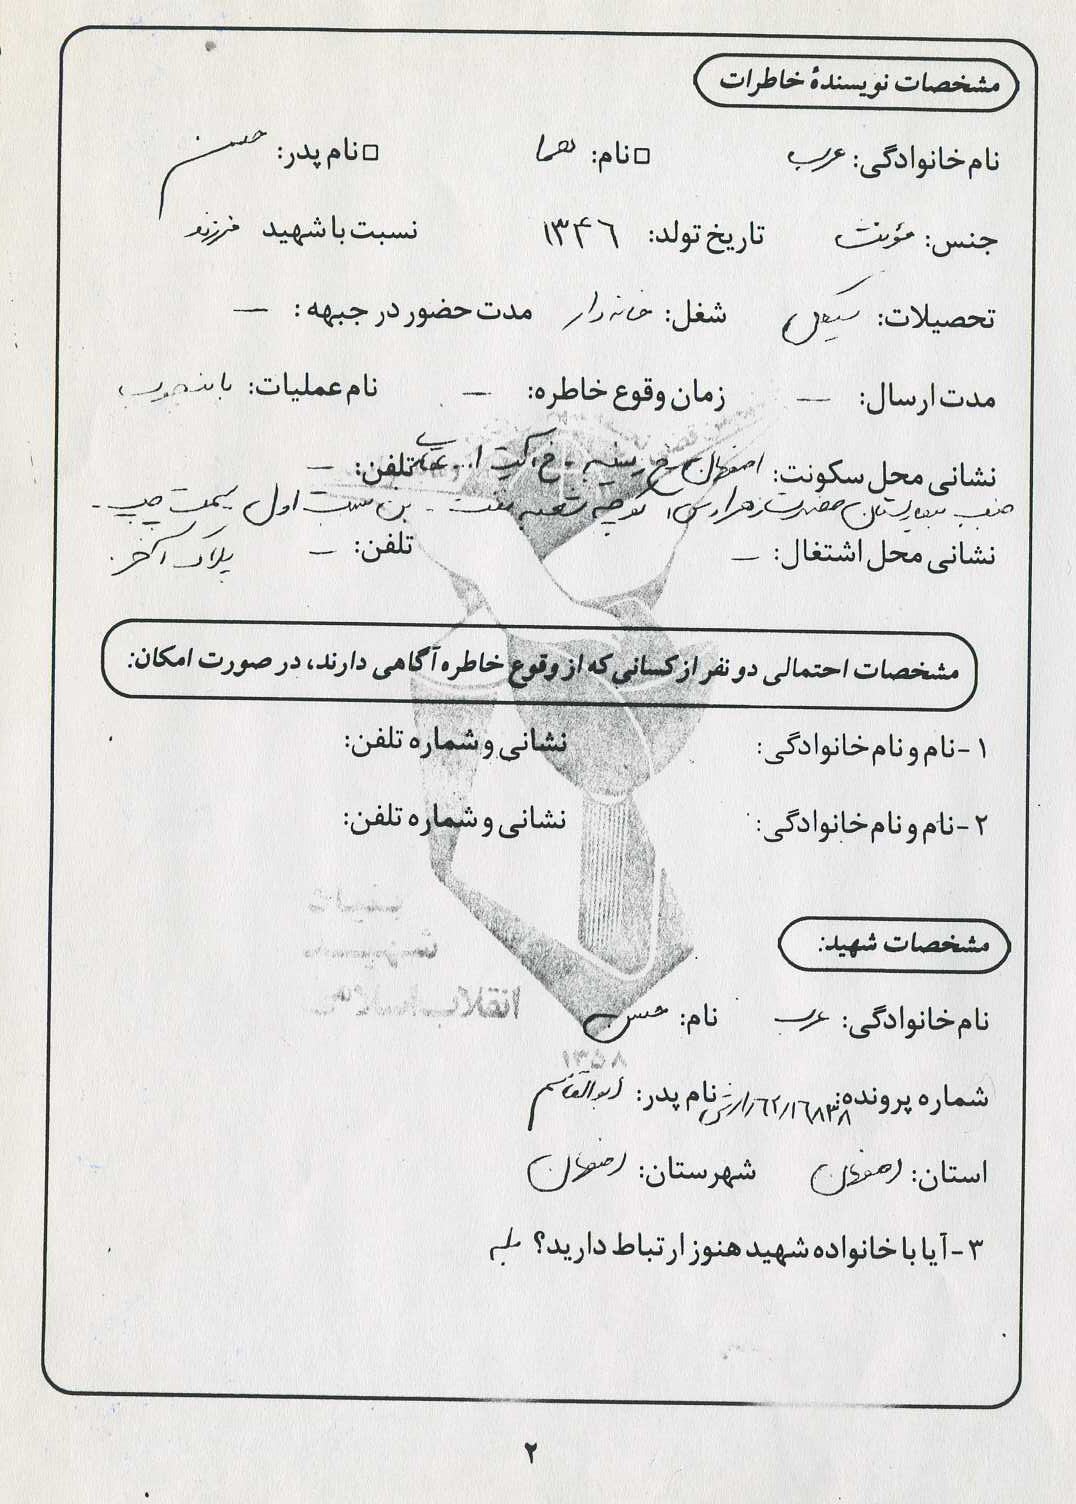 مشخصات نویسندهٔ خاطرات
نام خانوادگی: عرب □ نام: هما □ نام پدر: حسن
جنس: مؤنث تاریخ تولد: ۱۳۴۶ نسبت با شهید فرزند
تحصیلات: سیکل شغل: خانه دار مدت حضور در جبهه: —
مدت ارسال: — زمان وقوع خاطره: — نام عملیات:
نشانی محل سکونت: اصفهان - خ زینبیه - خ آیت ا... تلفن: —
جنب بیمارستان حضرت زهرا (س) کوچه شعبه نفت - بن بست اول سمت چپ -
نشانی محل اشتغال: — تلفن: — پلاک آخر
مشخصات احتمالی دو نفر از کسانی که از وقوع خاطره آگاهی دارند، در صورت امکان:
۱- نام و نام خانوادگی: نشانی و شماره تلفن:
۲- نام و نام خانوادگی: نشانی و شماره تلفن:
مشخصات شهید:
نام خانوادگی: عرب نام: حسن
انقلاب اسلامی
۱۳۵۸
شماره پرونده: ۶۲/۱۶۸۳۸ نام پدر: ابوالقاسم
استان: اصفهان شهرستان: اصفهان
۳- آیا با خانواده شهید هنوز ارتباط دارید؟ بله
۲